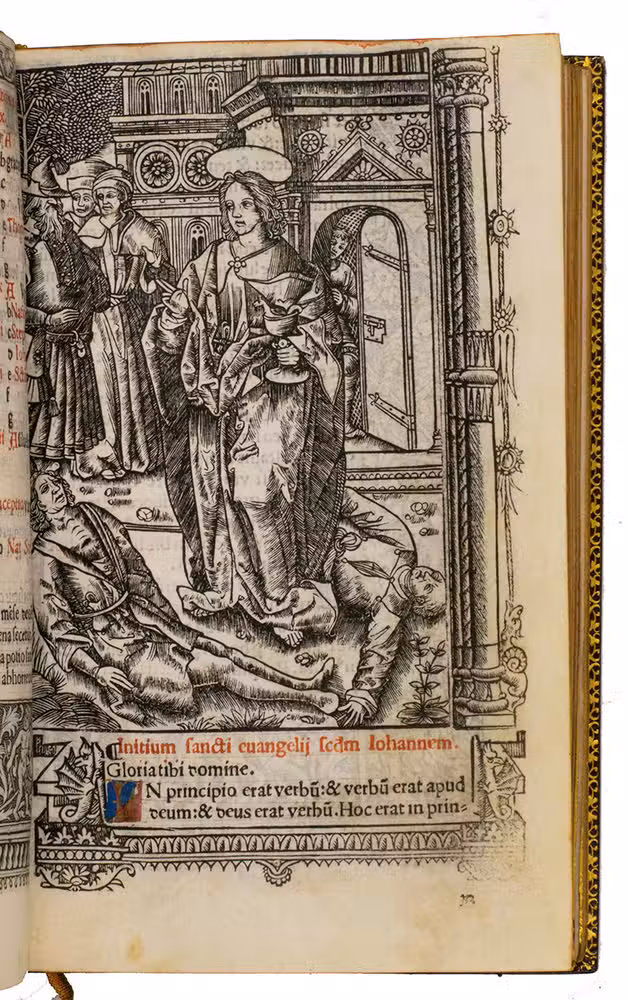 ¶Initium ſancti euangelij ſcd̃m Iohannem.
Gloria tibi domine.
IN principio erat verbū:& verbū erat apud
deum:& deus erat verbū.Hoc erat in prin=